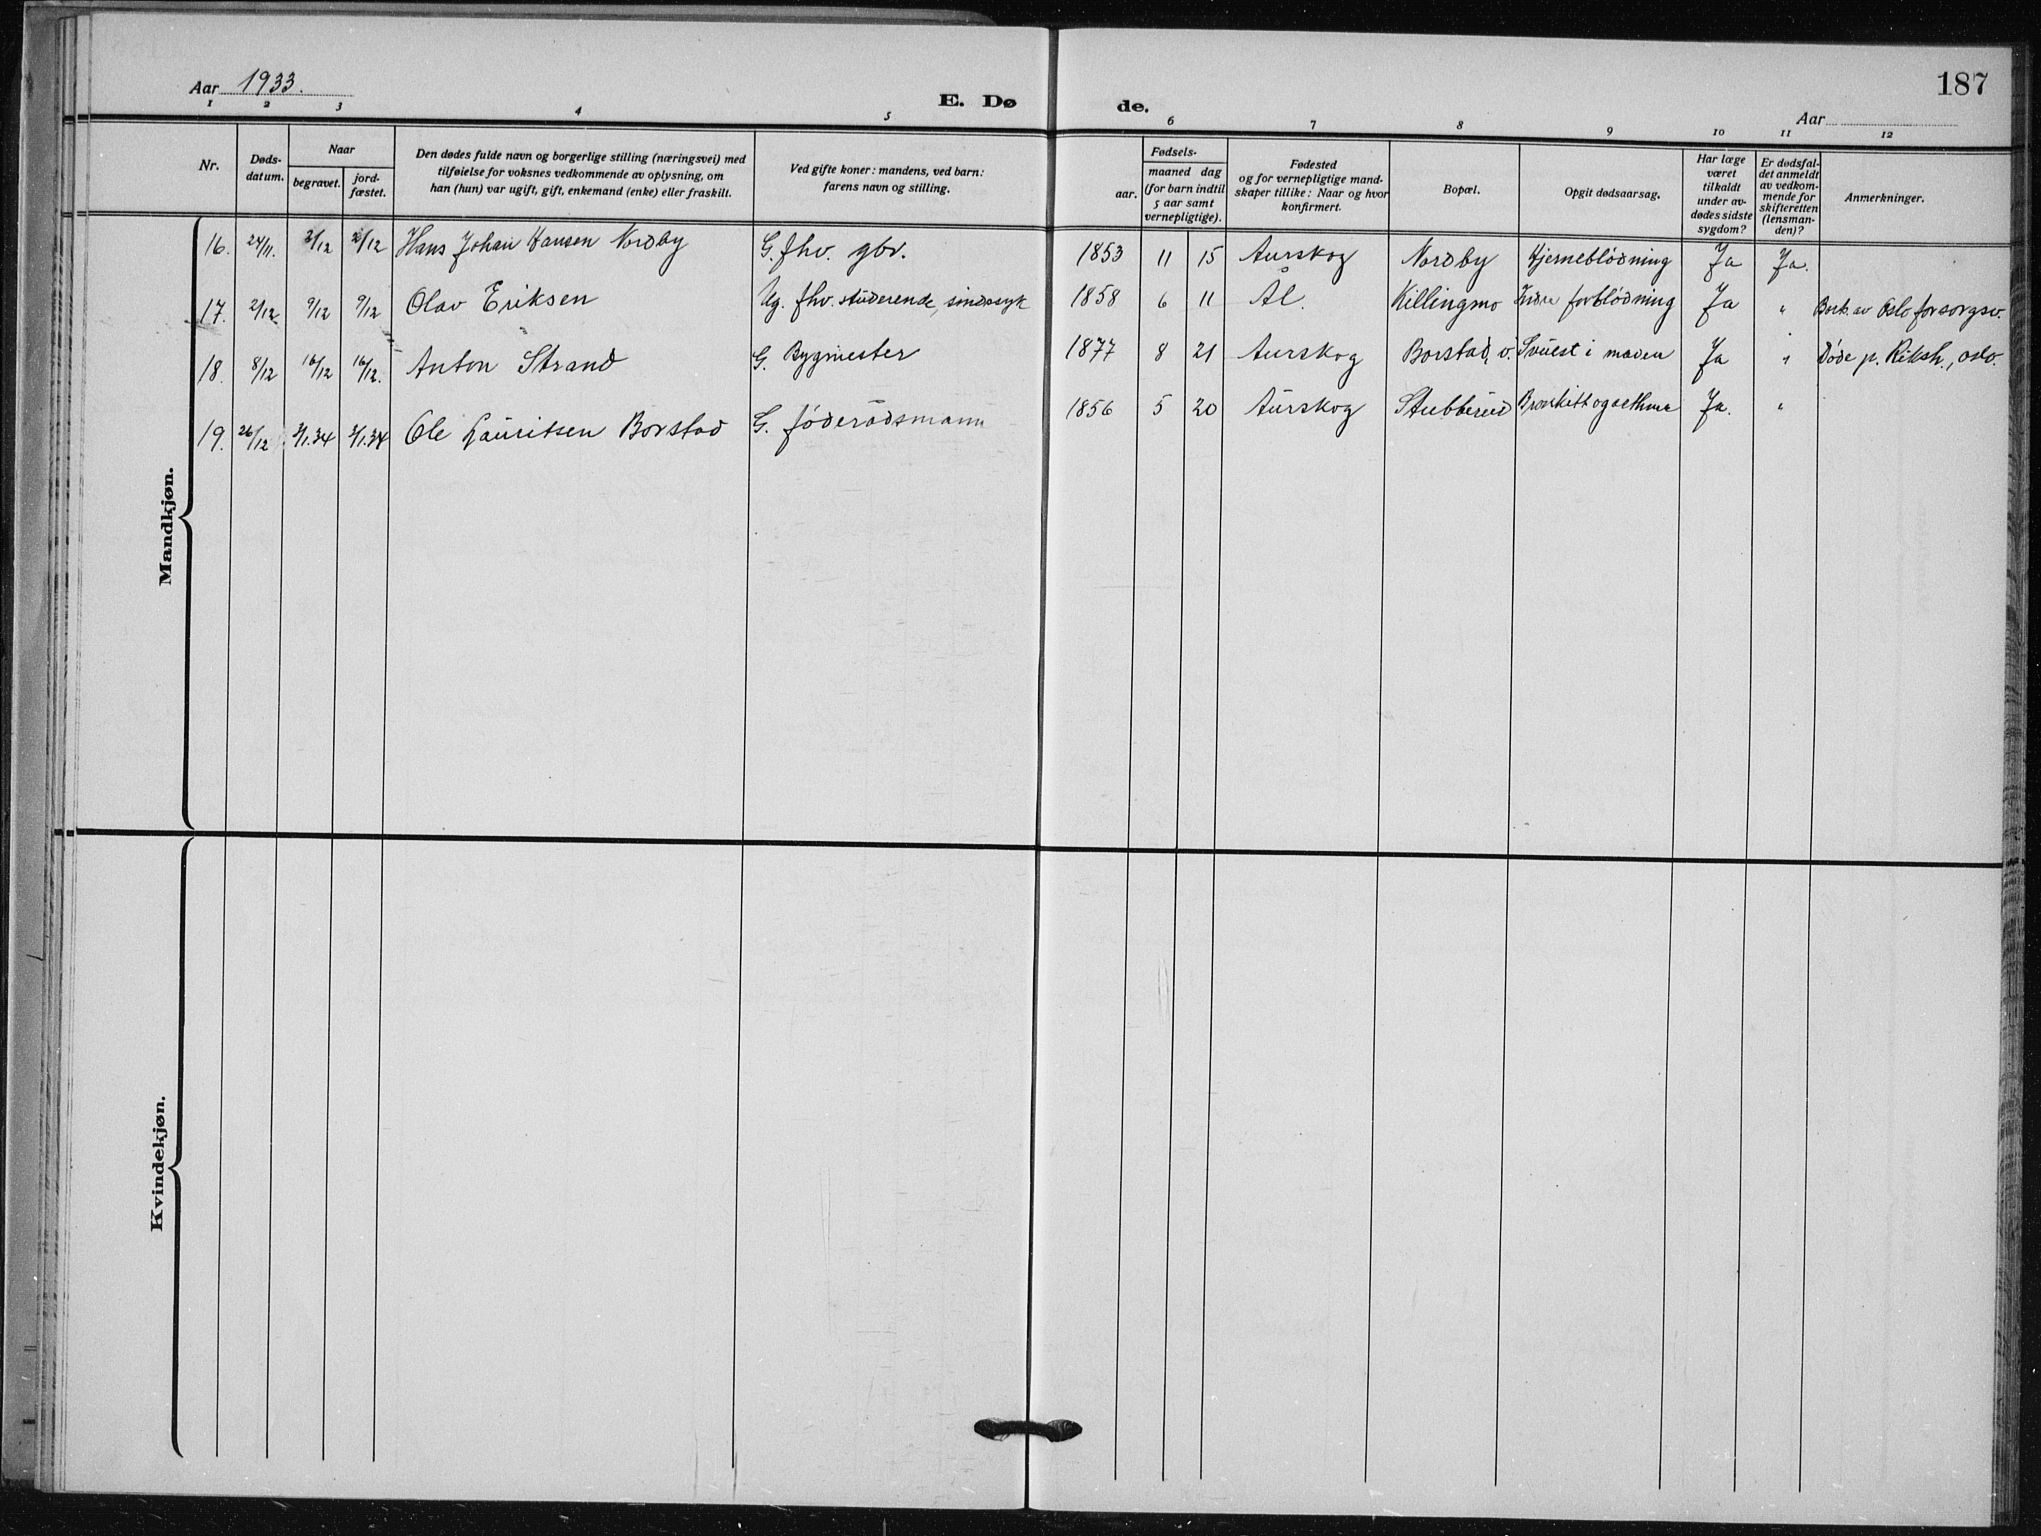 187
Aar 1933.
E. Dø de.
Aar
1 2 3 4 5 6 7 8 9 10 11 12
Nr.
Døds-
datum.
Naar
begravet.
jord-
fæstet.
Den dødes fulde navn og borgerlige stilling (næringsvei) med
tilføielse for voksnes vedkommende av oplysning, om
han (hun) var ugift, gift, enkemand (enke) eller fraskilt.
Ved gifte koner: mandens, ved barn:
farens navn og stilling.
Fødsels-
aar.
maaned dag
(for barn indtil
5 aar samt
vernepligtige).
Fødested
og for vernepligtige mand-
skaper tillike: Naar og hvor
konfirmert.
Bopæl.
Opgit dødsaarsag.
Har læge
været
tilkaldt
under av-
dødes sidste
sygdom?
Er dødsfal-
det anmeldt
av vedkom-
mende for
skifteretten
(lensman-
den)?
Anmerkninger.
Mandkjøn.
16. 24/11. 2/12 2/12 Hans Johan Hansen Nordby G. fhv. gbr. 1853 11 15 Aurskog Nordby Hjerneblødning Ja Ja.
17. 2/12 9/12 9/12 Olav Eriksen Ug. fhv. studerende, sindssyk 1858 6 11 Ål. Killingmo Indre forblødning Ja " Borts. av Oslo forsorgsv.
18. 8/12 16/12 16/12. Anton Strand G. Bygmester 1877 8 21 Aurskog Borstad, v. Svulst i maven Ja " Døde p. Riksh., Oslo.
19. 26/12 2/1.34 2/1.34 Ole Lauritsen Borstad G. føderådsmann 1856 5 20 Aurskog Stubberud Bronkitt og asthma Ja. "
Kvindekjøn.